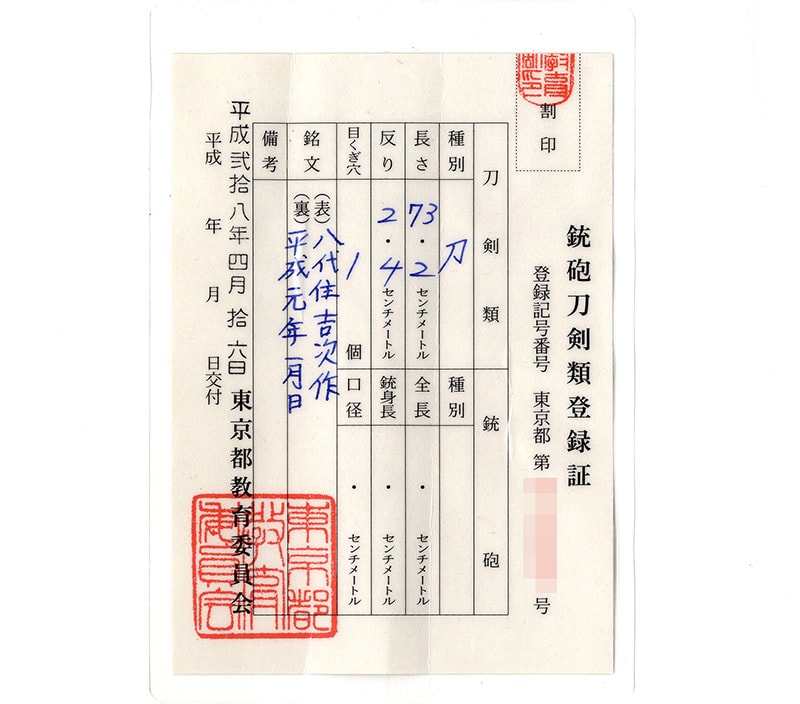 割印
銃砲刀剣類登録証
登録記号番号 東京都 第 号
刀剣類
銃砲
種別 刀
種別
長さ 73・2センチメートル
全長 ・ センチメートル
反り 2・4センチメートル
銃身長 ・ センチメートル
目くぎ穴 1個
口径 ・ センチメートル
銘文 (表)八代住吉次作
(裏)平成元年一月日
備考
平成弐拾八年四月拾六日
東京都教育委員会
平成 年 月 日交付
東京都教育委員会